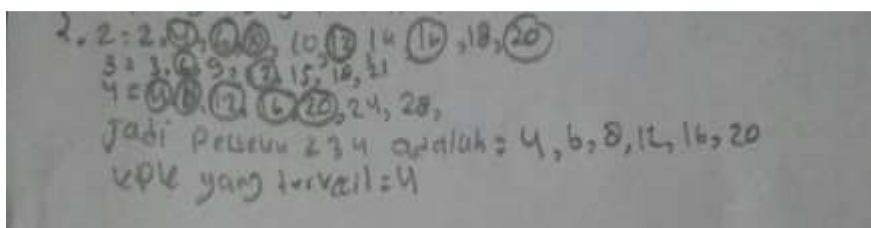 2. 2 : 2, 4, 6, 8, 10, 12, 14, 16, 18, 20
3 = 3, 6, 9, 12, 15, 18, 21
4 = 4, 8, 12, 16, 20, 24, 28,
Jadi 2 3 4 adalah = 4, 6, 8, 12, 16, 20
KPK yang terkecil = 4